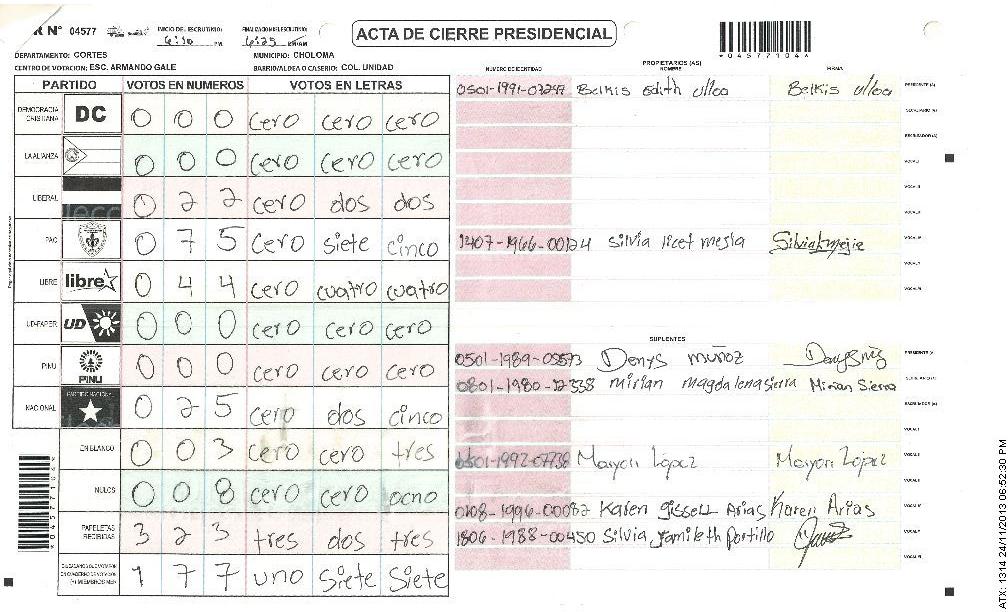 R Nº 04577
INICIO DEL ESCRUTINIO:
6:10 PM
FINALIZACION DEL ESCRUTINIO:
6:25 PM/AM
ACTA DE CIERRE PRESIDENCIAL
*04577104*
DEPARTAMENTO: CORTES
MUNICIPIO: CHOLOMA
CENTRO DE VOTACION: ESC. ARMANDO GALE
BARRIO/ALDEA O CASERIO: COL. UNIDAD
PARTIDO VOTOS EN NUMEROS VOTOS EN LETRAS
DEMOCRACIA CRISTIANA DC 0 0 0 cero cero cero
LA ALIANZA 0 0 0 cero cero cero
LIBERAL 0 2 2 cero dos dos
PAC 0 7 5 cero siete cinco
LIBRE libre 0 4 4 cero cuatro cuatro
UD-FAPER UD 0 0 0 cero cero cero
PINU PINU 0 0 0 cero cero cero
NACIONAL PARTIDO NACIONAL 0 2 5 cero dos cinco
EN BLANCO 0 0 3 cero cero tres
NULOS 0 0 8 cero cero ocho
PAPELETAS RECIBIDAS 3 2 3 tres dos tres
1 7 7 uno siete siete
PROPIETARIOS (AS)
NUMERO DE IDENTIDAD NOMBRE FIRMA
Belkis Edith Ulloa Belkis Ulloa PRESIDENTE (A)
SECRETARIO (A)
ESCRUTADOR (A)
VOCAL I
VOCAL II
VOCAL III
1407-1966-00124 Silvia licet mejia Silvia L mejia
SUPLENTES
Denys muñoz
0801-1980-12338 mirian magdalena sierra Mirian Sierra
Mayori López Mayori López
0108-1996-00082 Karen Gissell Arias Karen Arias
1806-1988-00450 Silvia Jamileth Portillo
*04577104*
ATX: 1314 24/11/2013 06:52:30 PM